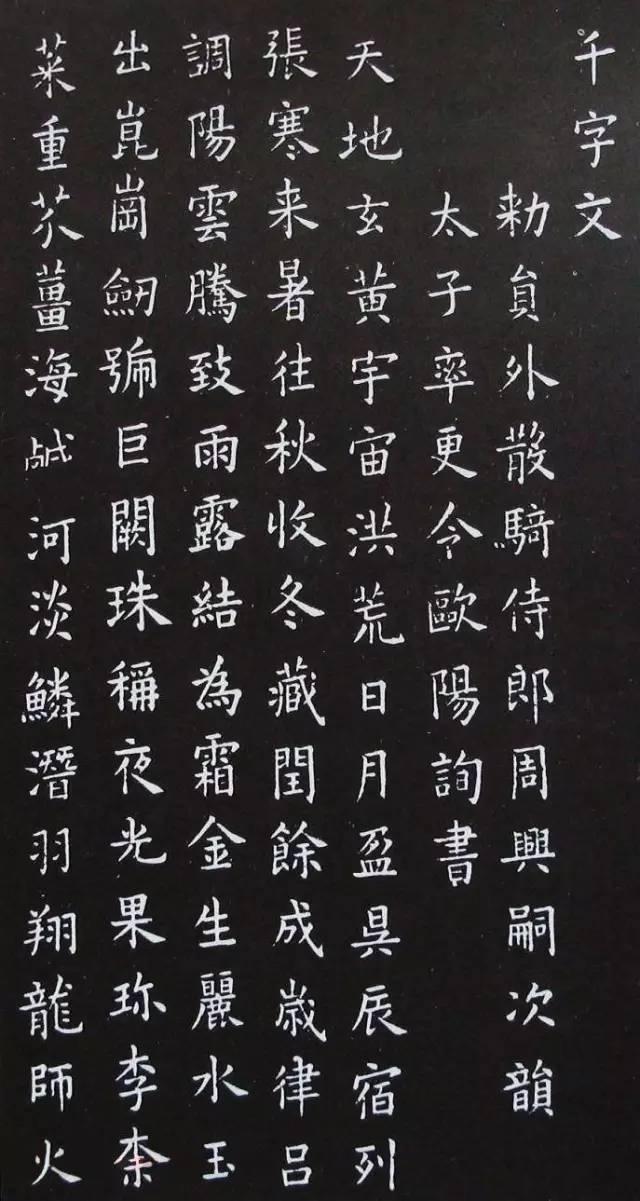 千字文
勑貟外散騎侍郎周興嗣次韻
太子率更令歐陽詢書
天地玄黃宇宙洪荒日月盈昃辰宿列
張寒来暑往秋收冬藏閏餘成歲律呂
調陽雲騰致雨露結為霜金生麗水玉
出崑崗劒號巨闕珠稱夜光果珎李柰
菜重芥薑海醎河淡鱗潛羽翔龍師火